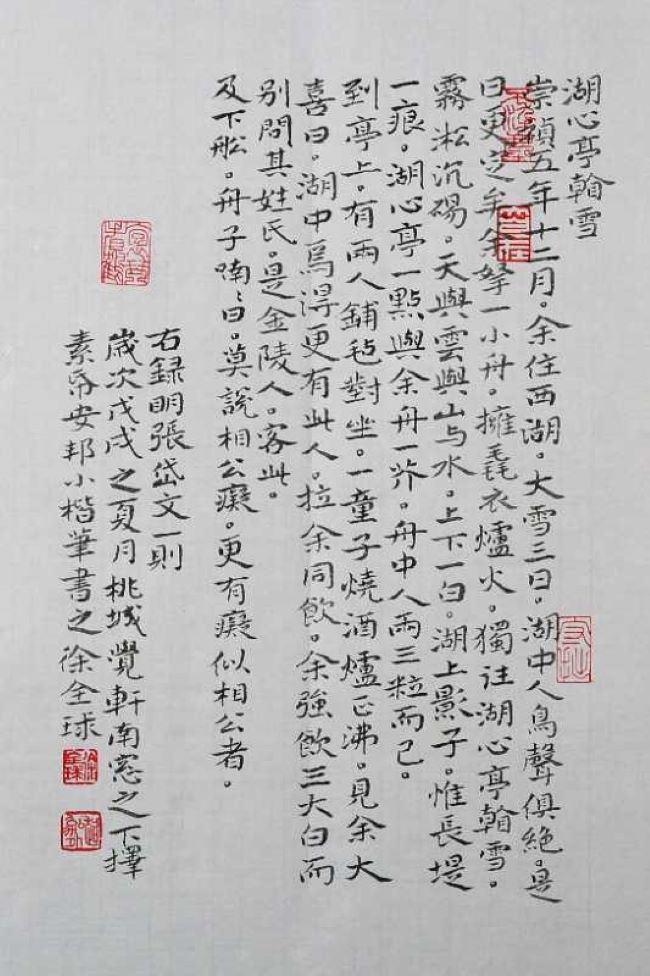 湖心亭翰雪
崇禎五年十二月。余住西湖。大雪三日。湖中人鳥聲俱絶。是
日更定矣余拏一小舟。擁毳衣爐火。獨往湖心亭翰雪。
霧淞沉碭。天與雲與山与水。上下一白。湖上影子。惟長堤
一痕。湖心亭一點與余舟一芥。舟中人兩三粒而已。
到亭上。有兩人鋪氈對坐。一童子燒酒爐正沸。見余大
喜曰。湖中焉得更有此人。拉余同飲。余強飲三大白而
别問其姓氏。是金陵人。客此。
及下船。舟子喃〻曰。莫說相公癡。更有癡似相公者。
右録明張岱文一則
歲次戊戌之夏月桃城覺軒南窓之下擇
素帋安邦小楷筆書之徐全球